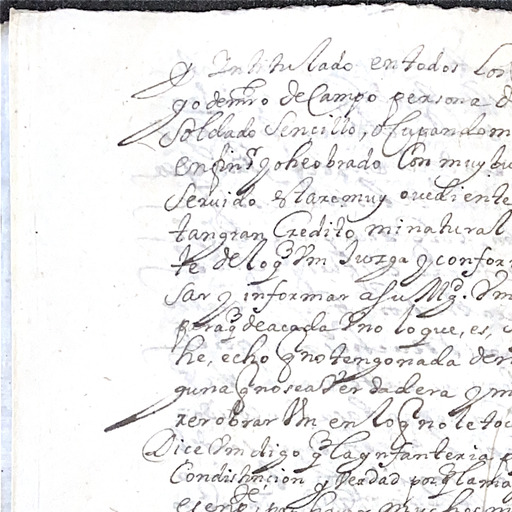 Y Intitulado en todos los
go de mro de Campo persona d
Soldado Sencillo, ocupandom
en fin Sr q o he obrado Con muy bu
Servido estare muy ovediente
tan gran Credito mi natural
te de lo q Vm Juzga y confor
sar y informar a su Mgd. Vm
pera q de a cada Vno lo que, es,
he, echo q no tengo nada de
guna q no sea Verdadera y m
rer obrar Vm en lo q no le toc
Dice Vm digo q la ynfanteria
Con distincion y Verdad por q la ma
muchos m